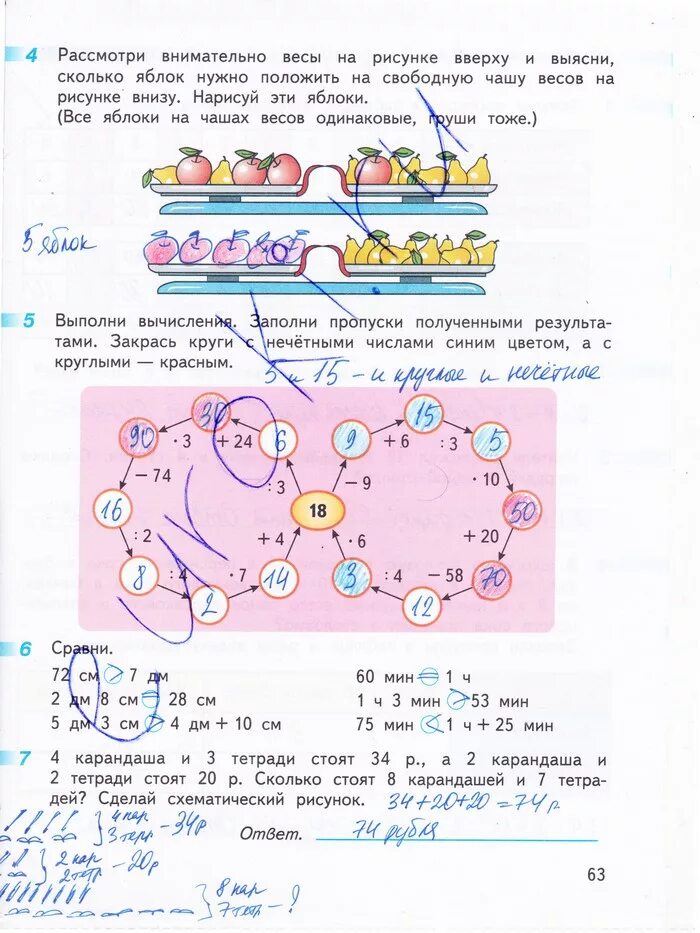 4 Рассмотри внимательно весы на рисунке вверху и выясни,
сколько яблок нужно положить на свободную чашу весов на
рисунке внизу. Нарисуй эти яблоки.
(Все яблоки на чашах весов одинаковые, груши тоже.)
5 яблок
5 Выполни вычисления. Заполни пропуски полученными результа-
тами. Закрась круги с нечётными числами синим цветом, а с
круглыми — красным.
5 и 15 - и круглые и нечётные
30 15
90 · 3 + 24 6 9 + 6 : 3 5
− 74 : 3 − 9 · 10
16 18 50
: 2 + 4 · 6 + 20
8 : 4 · 7 14 3 : 4 − 58 70
2 12
6 Сравни.
72 см > 7 дм 60 мин = 1 ч
2 дм 8 см = 28 см 1 ч 3 мин > 53 мин
5 дм 3 см > 4 дм + 10 см 75 мин < 1 ч + 25 мин
7 4 карандаша и 3 тетради стоят 34 р., а 2 карандаша и
2 тетради стоят 20 р. Сколько стоят 8 карандашей и 7 тетра-
дей? Сделай схематический рисунок. 34+20+20=74р
4 кар
3 тетр - 34р
Ответ. 74 рубля
2 кар
2 тетр - 20р
8 кар
7 тетр - ?
63